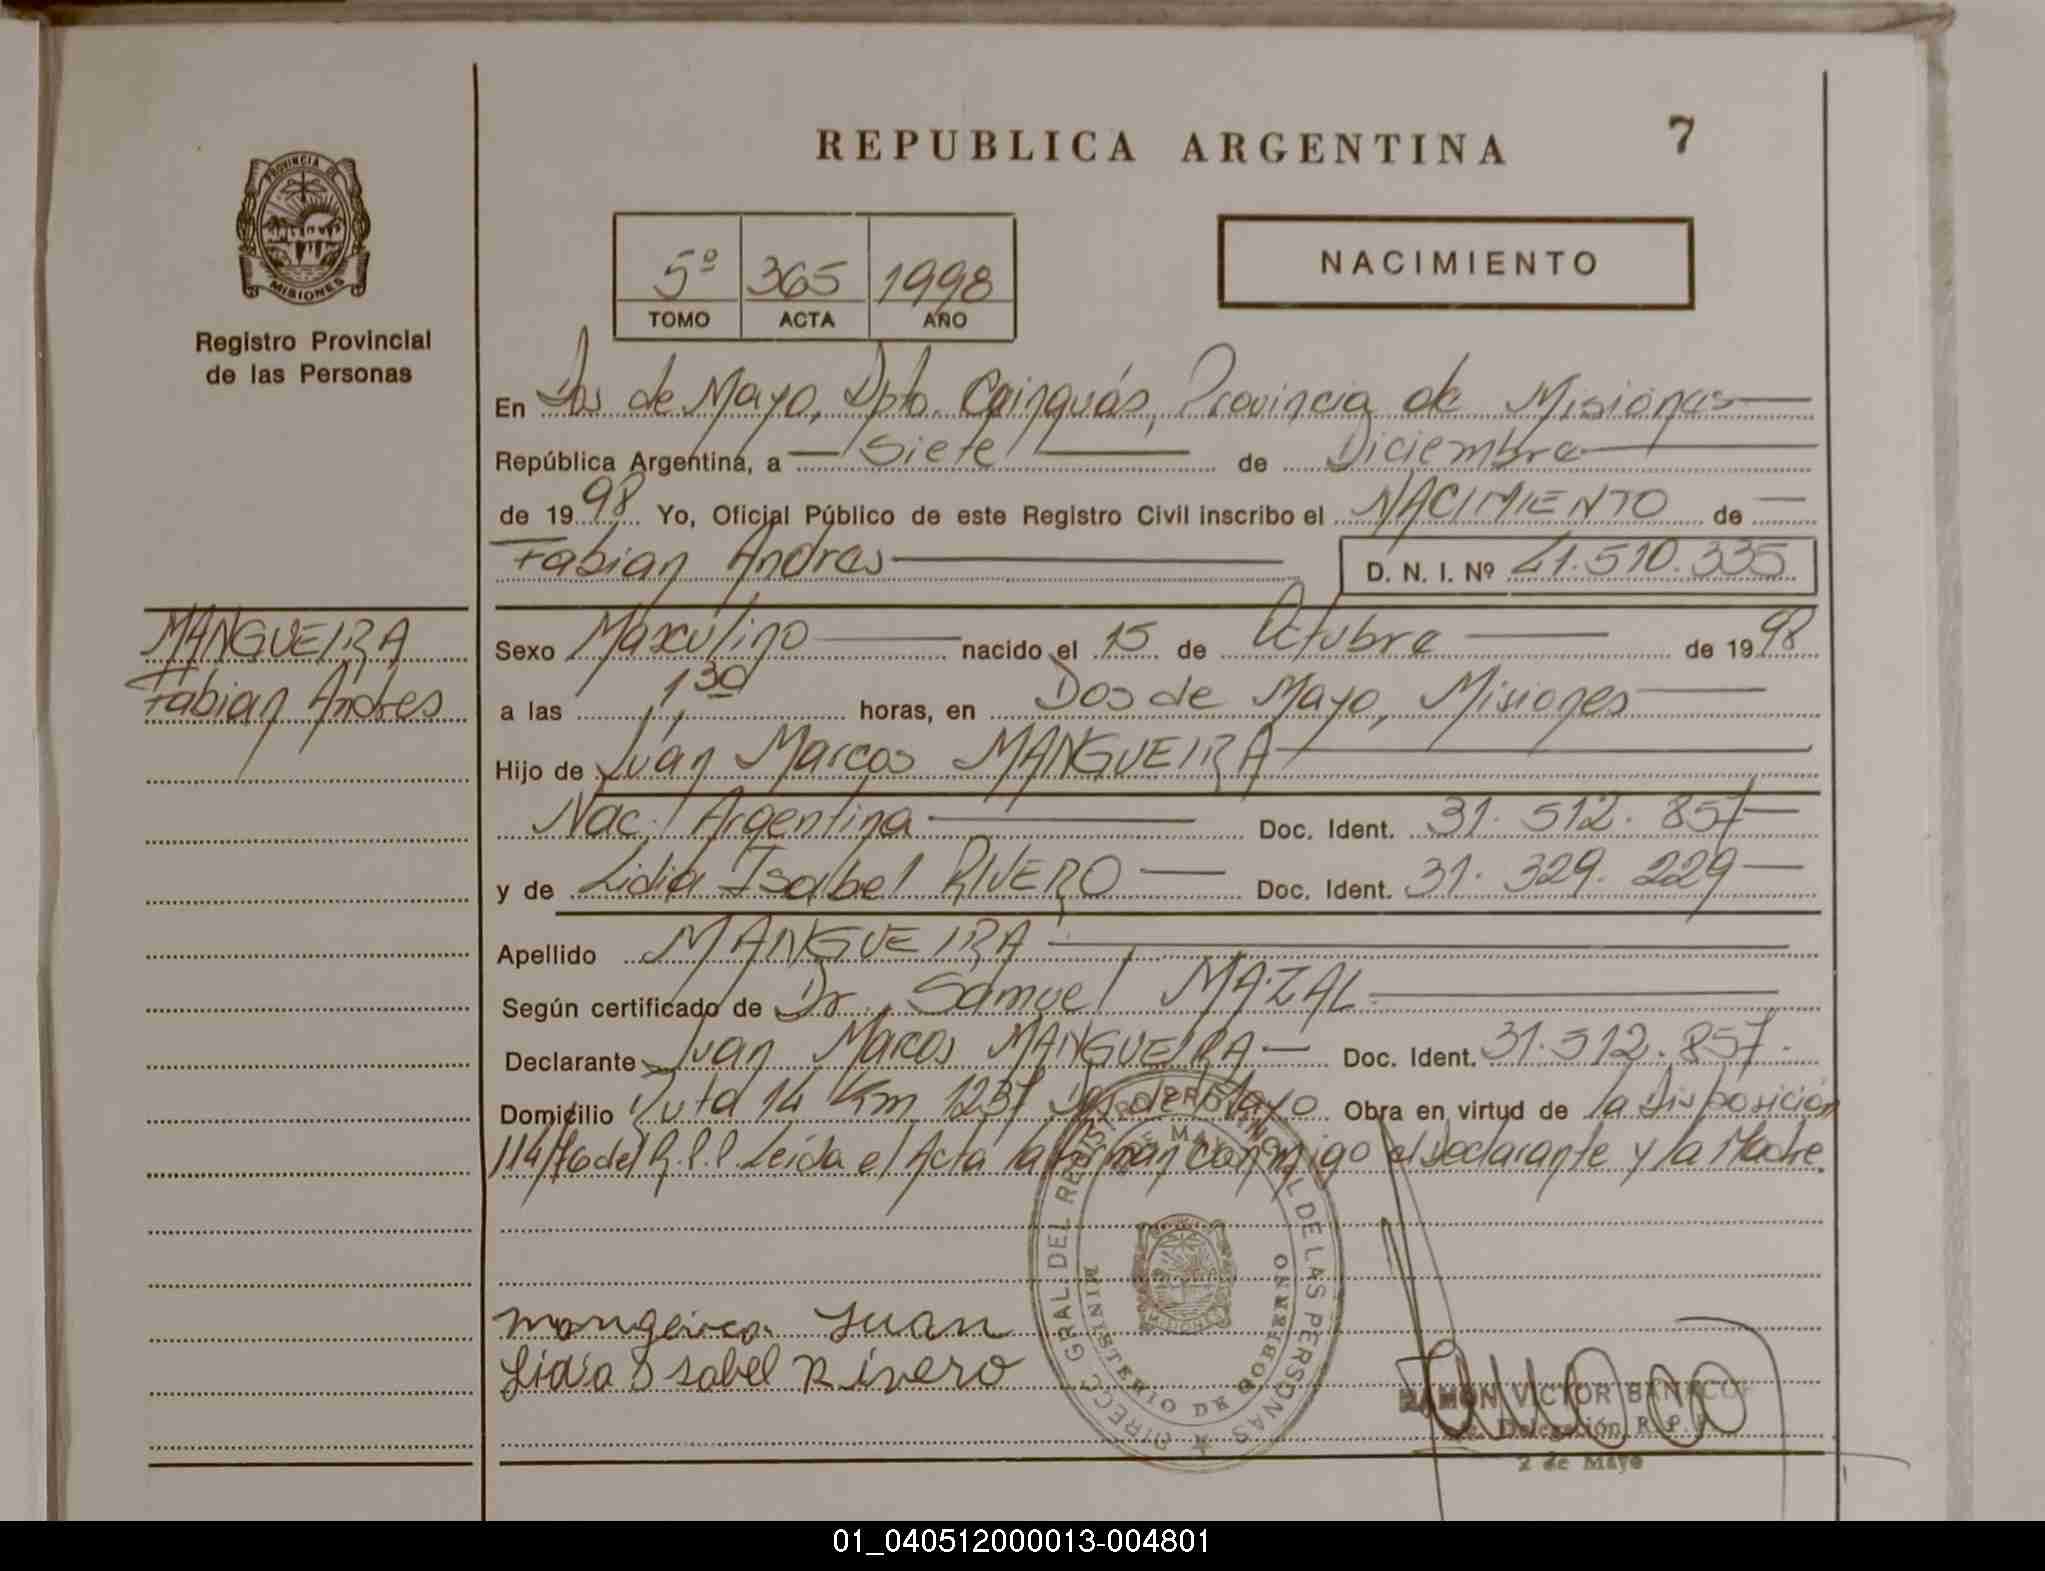 REPUBLICA ARGENTINA
7
PROVINCIA DE
MISIONES
Registro Provincial
de las Personas
5º 365 1998
TOMO ACTA AÑO
NACIMIENTO
En Dos de Mayo, Dpto. Cainguás, Provincia de Misiones
República Argentina, a Siete de Diciembre
de 1998 Yo, Oficial Público de este Registro Civil inscribo el NACIMIENTO de
Fabian Andres
D. N. I. Nº 41.510.335
MANGUEIRA
Fabian Andres
Sexo Masculino nacido el 15 de Octubre de 1998
a las 1 30 horas, en Dos de Mayo, Misiones
Hijo de Juan Marcos MANGUEIRA
Nac. Argentina Doc. Ident. 31.512.857
y de Lidia Isabel RIVERO Doc. Ident. 31.329.229
Apellido MANGUEIRA
Según certificado de Dr. Samuel MAZAL
Declarante Juan Marcos MANGUEIRA Doc. Ident. 31.512.857.
Domicilio Ruta 14 Km 1237 Dos de Mayo Obra en virtud de la Disposición
114/76 del R.P.P. Leída el Acta la firman conmigo el Declarante y la Madre.
DIRECC. GRAL DEL REGISTRO PROVINCIAL DE LAS PERSONAS
DE MAYO
MINISTERIO DE GOBIERNO
MISIONES
mangeira Juan
Lidia Isabel Rivero
RAMON VICTOR
Delegación R. P. P.
2 de Mayo
01_040512000013-004801